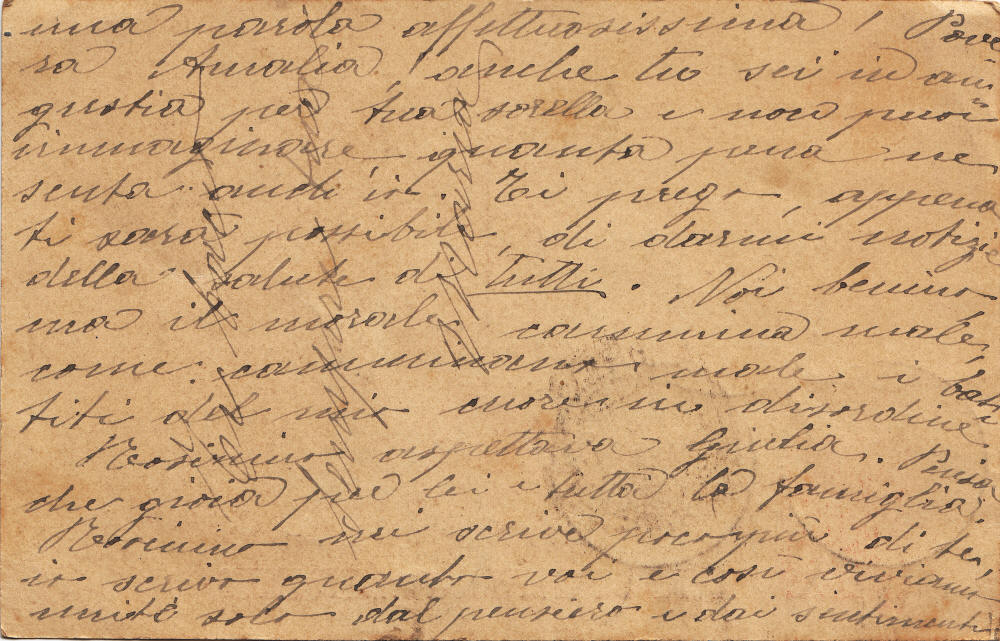 una parola affettuosissima! Pove
ra Amalia, anche tu sei in an
gustia per tua sorella e non puoi
immaginare quanta pena ne
senta anch'io. Ti prego, appena
ti sarà possibile, di darmi notizie
della salute di tutti. Noi benino,
ma il morale cammina male,
come camminano male i bat
titi del mio cuore in disordine.
Rosinino aspettava Giulia. Pensa
che gioia per lei e tutta la famiglia.
Rosinino mi scrive poco più di te,
io scrivo quanto voi e così viviamo
unite solo dal pensiero e dai sentimenti
Maria